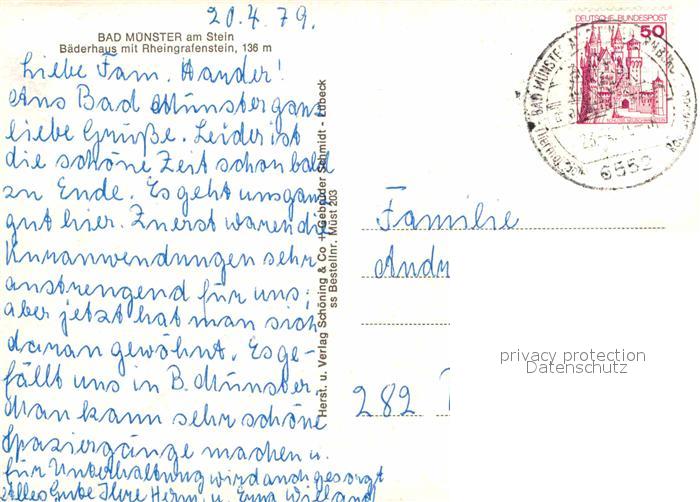 20.4.79.
BAD MÜNSTER am Stein
Bäderhaus mit Rheingrafenstein, 136 m
Liebe Fam.
Aus Bad Münster ganz
liebe Grüße. Leider ist
die schöne Zeit schon bald
zu Ende. Es geht uns ganz
gut hier. Zuerst waren die
Kuranwendungen sehr
anstrengend für uns;
aber jetzt hat man sich
daran gewöhnt. Es ge-
fällt uns in B. Münster.
Man kann sehr schöne
Spaziergänge machen u.
für Unterhaltung wird auch gesorgt
Alles Gute Ihre Herm. u. Erna
Herst. u. Verlag Schöning & Co + Gebrüder Schmidt - Lübeck
ss Bestellnr. Müst 203
DEUTSCHE BUNDESPOST
50
SCHLOSS NEUSCHWANSTEIN
BAD MÜNSTER AM
6552
Familie
Andr
282
privacy protection
Datenschutz